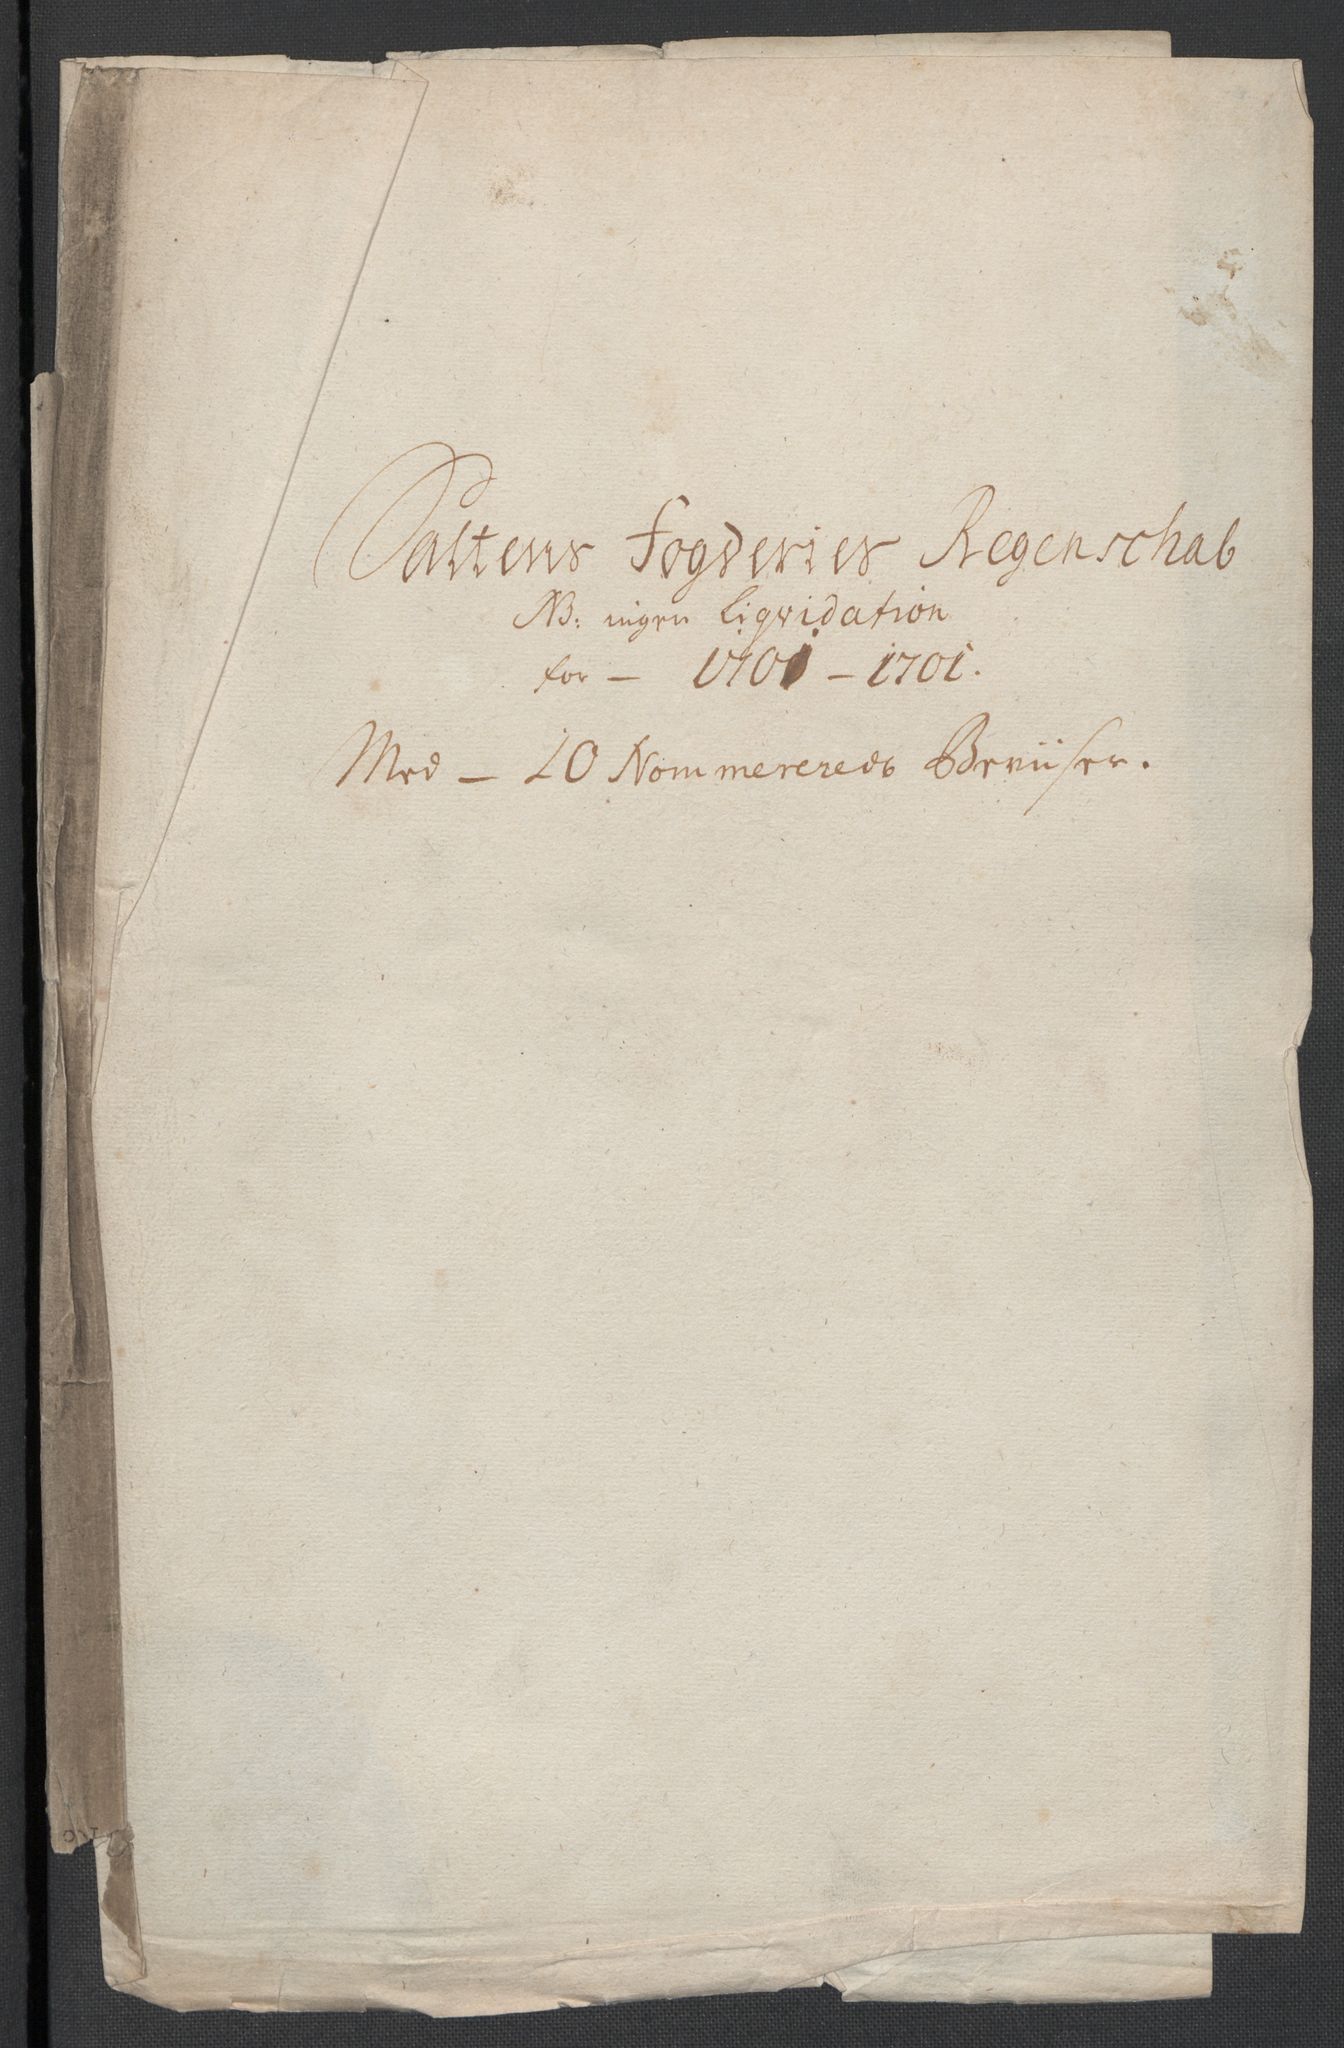 Saltens Fogderies Regenschab
NB: ingen liqvidation
for – 1701 – 1701.
Med – 10 Nommererede Beviiser.